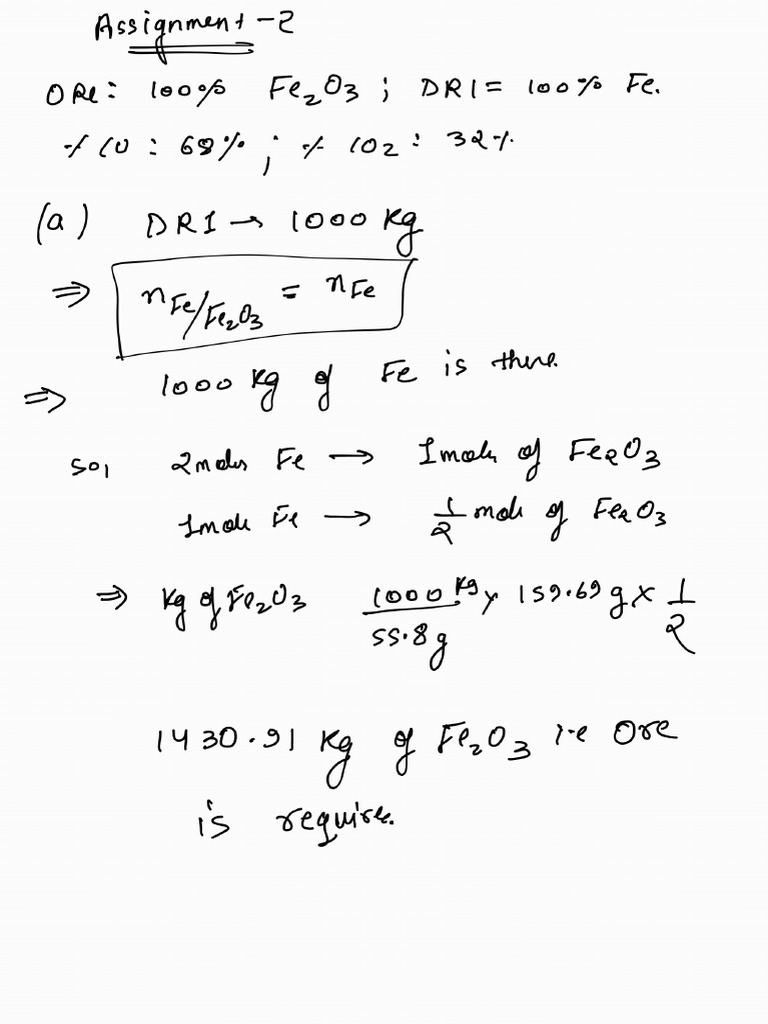 Assignment-2
ORe: 100% Fe2O3 ; DRI = 100% Fe.
% CO : 68% ; % CO2 : 32%
(a) DRI → 1000 kg
⇒ nFe/Fe2O3 = nFe
⇒ 1000 kg of Fe is there.
so, 2 moles Fe → 1 mole of Fe2O3
1 mole Fe → 1/2 mole of Fe2O3
⇒ kg of Fe2O3 1000 kg/55.8 g × 159.69 g × 1/2
1430.91 kg of Fe2O3 i.e Ore
is require.